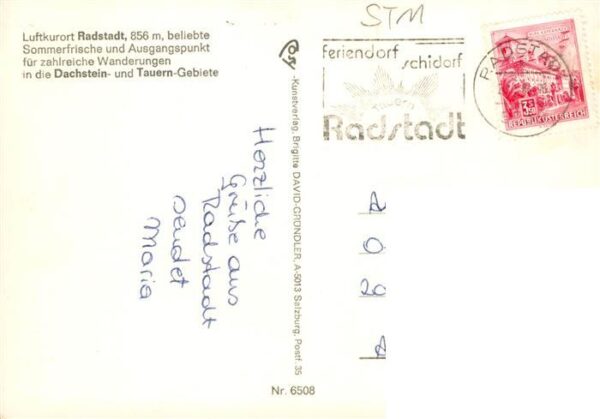 Luftkurort Radstadt, 856 m, beliebte
Sommerfrische und Ausgangspunkt
für zahlreiche Wanderungen
in die Dachstein- und Tauern-Gebiete
STM
feriendorf
schidorf
tauern
Radstadt
RADSTADT
REPUBLIK ÖSTERREICH
Post
-Kunstverlag, Brigitte DAVID-GRÜNDLER, A-5013 Salzburg, Postf. 35
Herzliche
Grüße aus
Radstadt
sendet
Maria
A
0
20
A
Nr. 6508